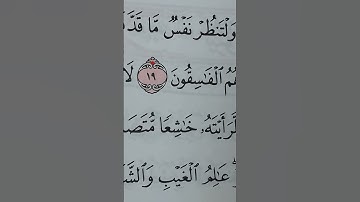 وَلْتَنظُرْ نَفْسٌ مَّا قَدَّ
هُمُ الْفَاسِقُونَ ١٩ لَا
لَّرَأَيْتَهُۥ خَاشِعًا مُّتَصَ
عَالِمُ الْغَيْبِ وَالشَّ